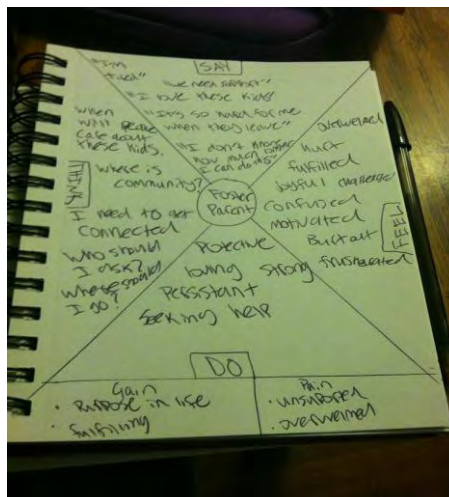 SAY
"I'm
tired"
"we need support"
"I love these kids"
"It's so hard for me
when they leave"
"I don't know
how much longer
I can do this"
THINK
When
will people
care about
these kids.
where is
community?
I need to get
connected
who should
I ask?
where should
I go?
Foster
Parent
FEEL
overwelmed
hurt
fulfilled
joyful challenged
confused
motivated
Burt out
frusterated
Protective
loving strong
Persistant
Seeking help
DO
Gain
• Purpose in life
• fulfilling
Pain
• unsupported
• overwelmed